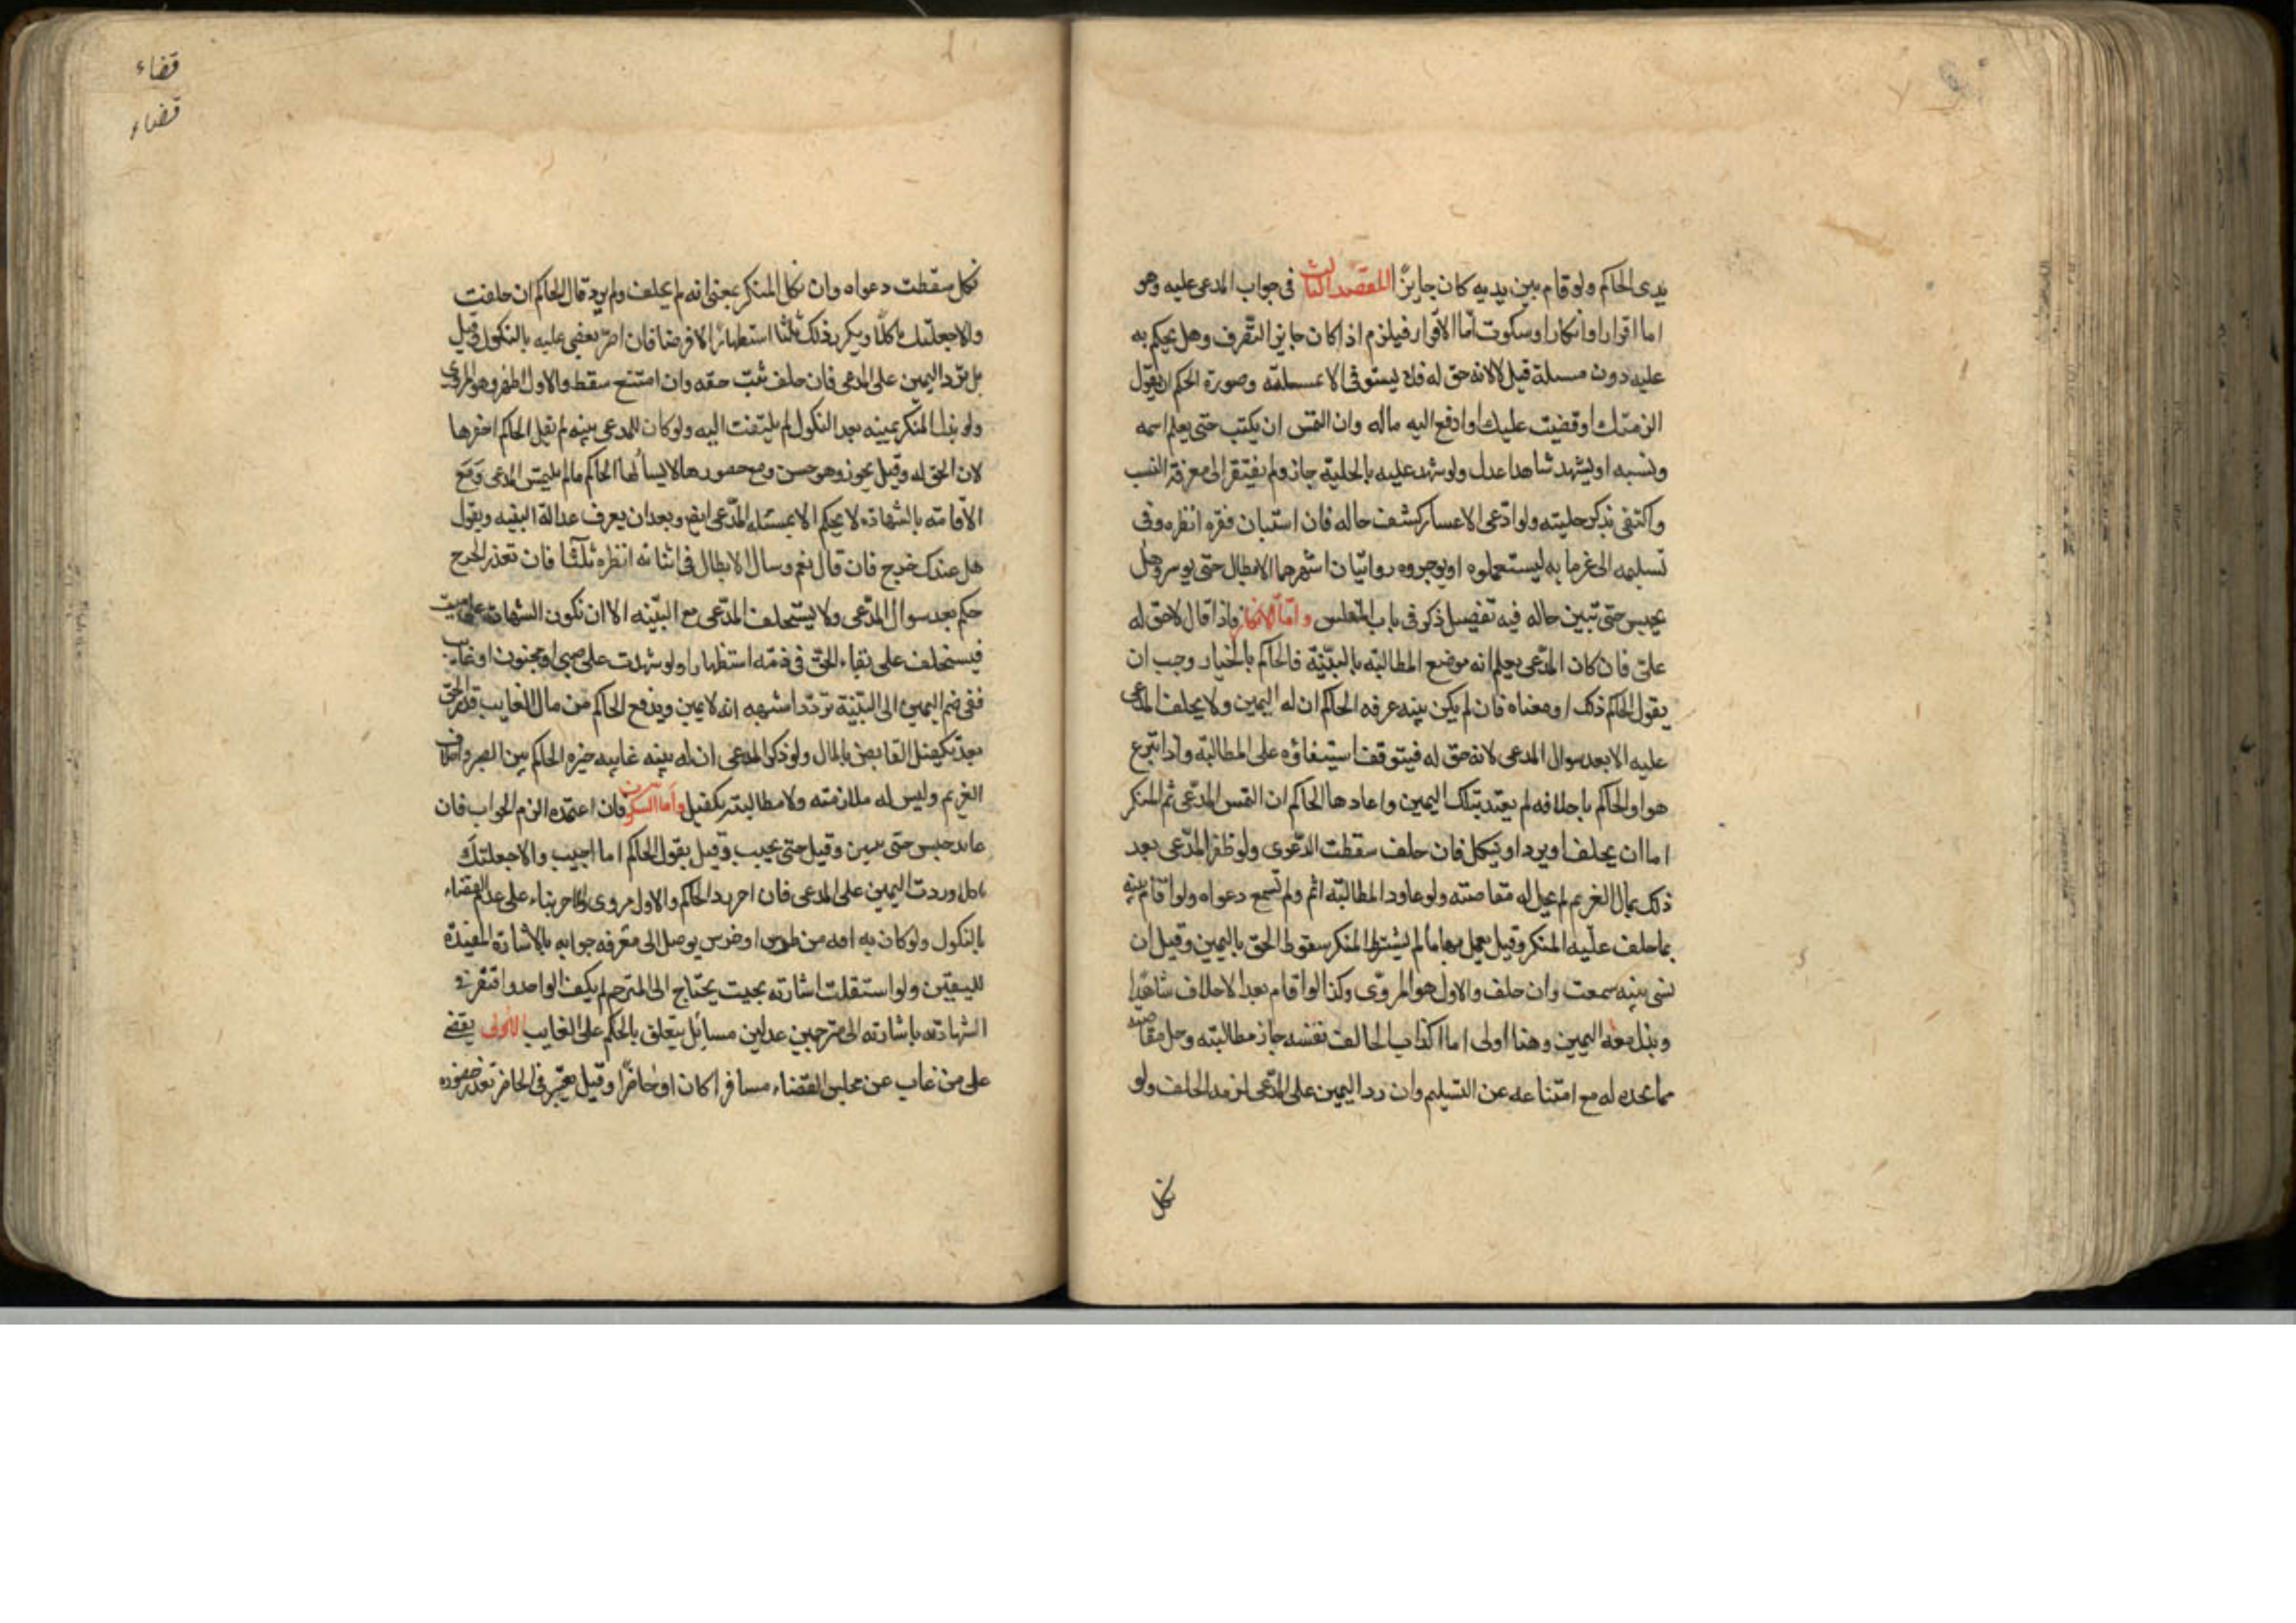 يدى الحاكم ولو قام بين يديه كان جايزا المقصد الثالث فى جواب المدعى عليه وهو
اما اقرار او انكار او سكوت اما الاقرار فيلزم اذا كان جايز التصرف وهل يحكم به
عليه دون مسلة قيل لا لانه حق له فلا يستوفى الا بمسلته وصورة الحكم ان يقول
الزمتك او قضيت عليك او ادفع اليه ماله وان التمس ان يكتب حتى يعلم اسمه
ونسبه او ليشهد شاهدا عدل ولو شهد عليه بالحلية جاز ولم يفتقر الى معرفة النسب
واكتفى بذكر حليته ولو ادعى الاعسار كشف حاله فان استبان فقره انظره وفى
تسليمه الى غرمايه ليستعملوه او يوجروه روايتان اشهرهما الانظار حتى يوسر وهل
يحبس حتى تبين حاله فيه تفصيل ذكر فى باب المفلس واما الانكار فاذا قال لا حق له
على فان كان المدعى يعلم انه موضع المطالبة بالبينة فالحاكم بالخيار وجب ان
يقول الحاكم ذلك او معناه فان لم يكن بينه عرفه الحاكم ان له اليمين ولا يحلف المدعى
عليه الا بعد سوال المدعى لانه حق له فيتوقف استيفاؤه على المطالبة واذا تبرع
هو او الحاكم باحلافه لم يعتد بتلك اليمين واعادها الحاكم ان التمس المدعى ثم المنكر
اما ان يحلف او يرد او ينكل فان حلف سقطت الدعوى ولو ظفر المدعى بعد
ذلك بمال الغريم لم يحل له مقاصته ولو عاود المطالبة اثم ولم تسمع دعواه ولو اقام بينه
بما حلف عليه المنكر وقيل يعمل بها ما لم يشترط المنكر سقوط الحق باليمين وقيل ان
نسى بينه سمعت وان حلف والاول هو المروى وكذا لو اقام بعد الاحلاف شاهدا
وبذل معه اليمين وهنا اولى اما اكذاب الحالف نفسه جاز مطالبته وحل مقاصته
مما يجده له مع امتناعه عن التسليم وان رد اليمين على المدعى لزمه الحلف ولو
نكل
قضاء
قضاء
نكل سقطت دعواه وان نكل المنكر بمعنى انه لم يحلف ولم يرد قال الحاكم ان حلفت
والا جعلتك ناكلا ويكرر ذلك ثلثا استظهارا لا فرضا فان اصر يقضى عليه بالنكول وقيل
بل يرد اليمين على المدعى فان حلف ثبت حقه وان امتنع سقط والاول اظهر وهو المروى
ولو بذل المنكر يمينه بعد النكول لم يلتفت اليه ولو كان للمدعى بينه لم يقل الحاكم احضرها
لان الحق له وقيل يجوز وهو حسن ومع حضورها لا يسالها الحاكم ما لم يلتمس المدعى ومع
الاقامة بالشهادة لا يحكم الا بمسئله المدعى ايض وبعد ان يعرف عدالة البينه ويقول
هل عندك جرح فان قال نعم وسال الانظار فى اثباته انظره ثلثا فان تعذر الجرح
حكم بعد سوال المدعى ولا يستحلف المدعى مع البينه الا ان تكون الشهادة على ميت
فيستحلف على بقاء الحق فى ذمته استظهارا ولو شهدت على صبى او مجنون او غايب
ففى ضم اليمين الى البينة تردد اشبهه انه لا يمين ويدفع الحاكم من مال الغايب قدر الحق
بعد تكفيل القابض بالمال ولو ذكر المدعى ان له بينه غايبه خيره الحاكم بين الصبر واحلاف
الغريم وليس له ملازمته ولا مطالبته بكفيل واما السكوت فان اعتمده الزم الجواب فان
عاند حبس حتى يبين وقيل حتى يجيب وقيل يقول الحاكم اما اجيب والا جعلتك
ناكل ورددت اليمين على المدعى فان اصر رد الحاكم والاول مروى والاخر بناء على عدم القضاء
بالنكول ولو كان به افه من طرش او خرس يوصل الى معرفه جوابه بالاشارة المفيدة
لليقين ولو استغلقت اشارته بحيث يحتاج الى المترجم لم يكف الواحد وافتقر فى
الشهادة باشارته الى مترجمين عدلين مسائل يتعلق بالحكم على الغايب الاولى يقضى
على من غاب عن مجلس القضاء مسافرا كان او حاضرا وقيل يعتبر فى الحاضر تعذر حضوره